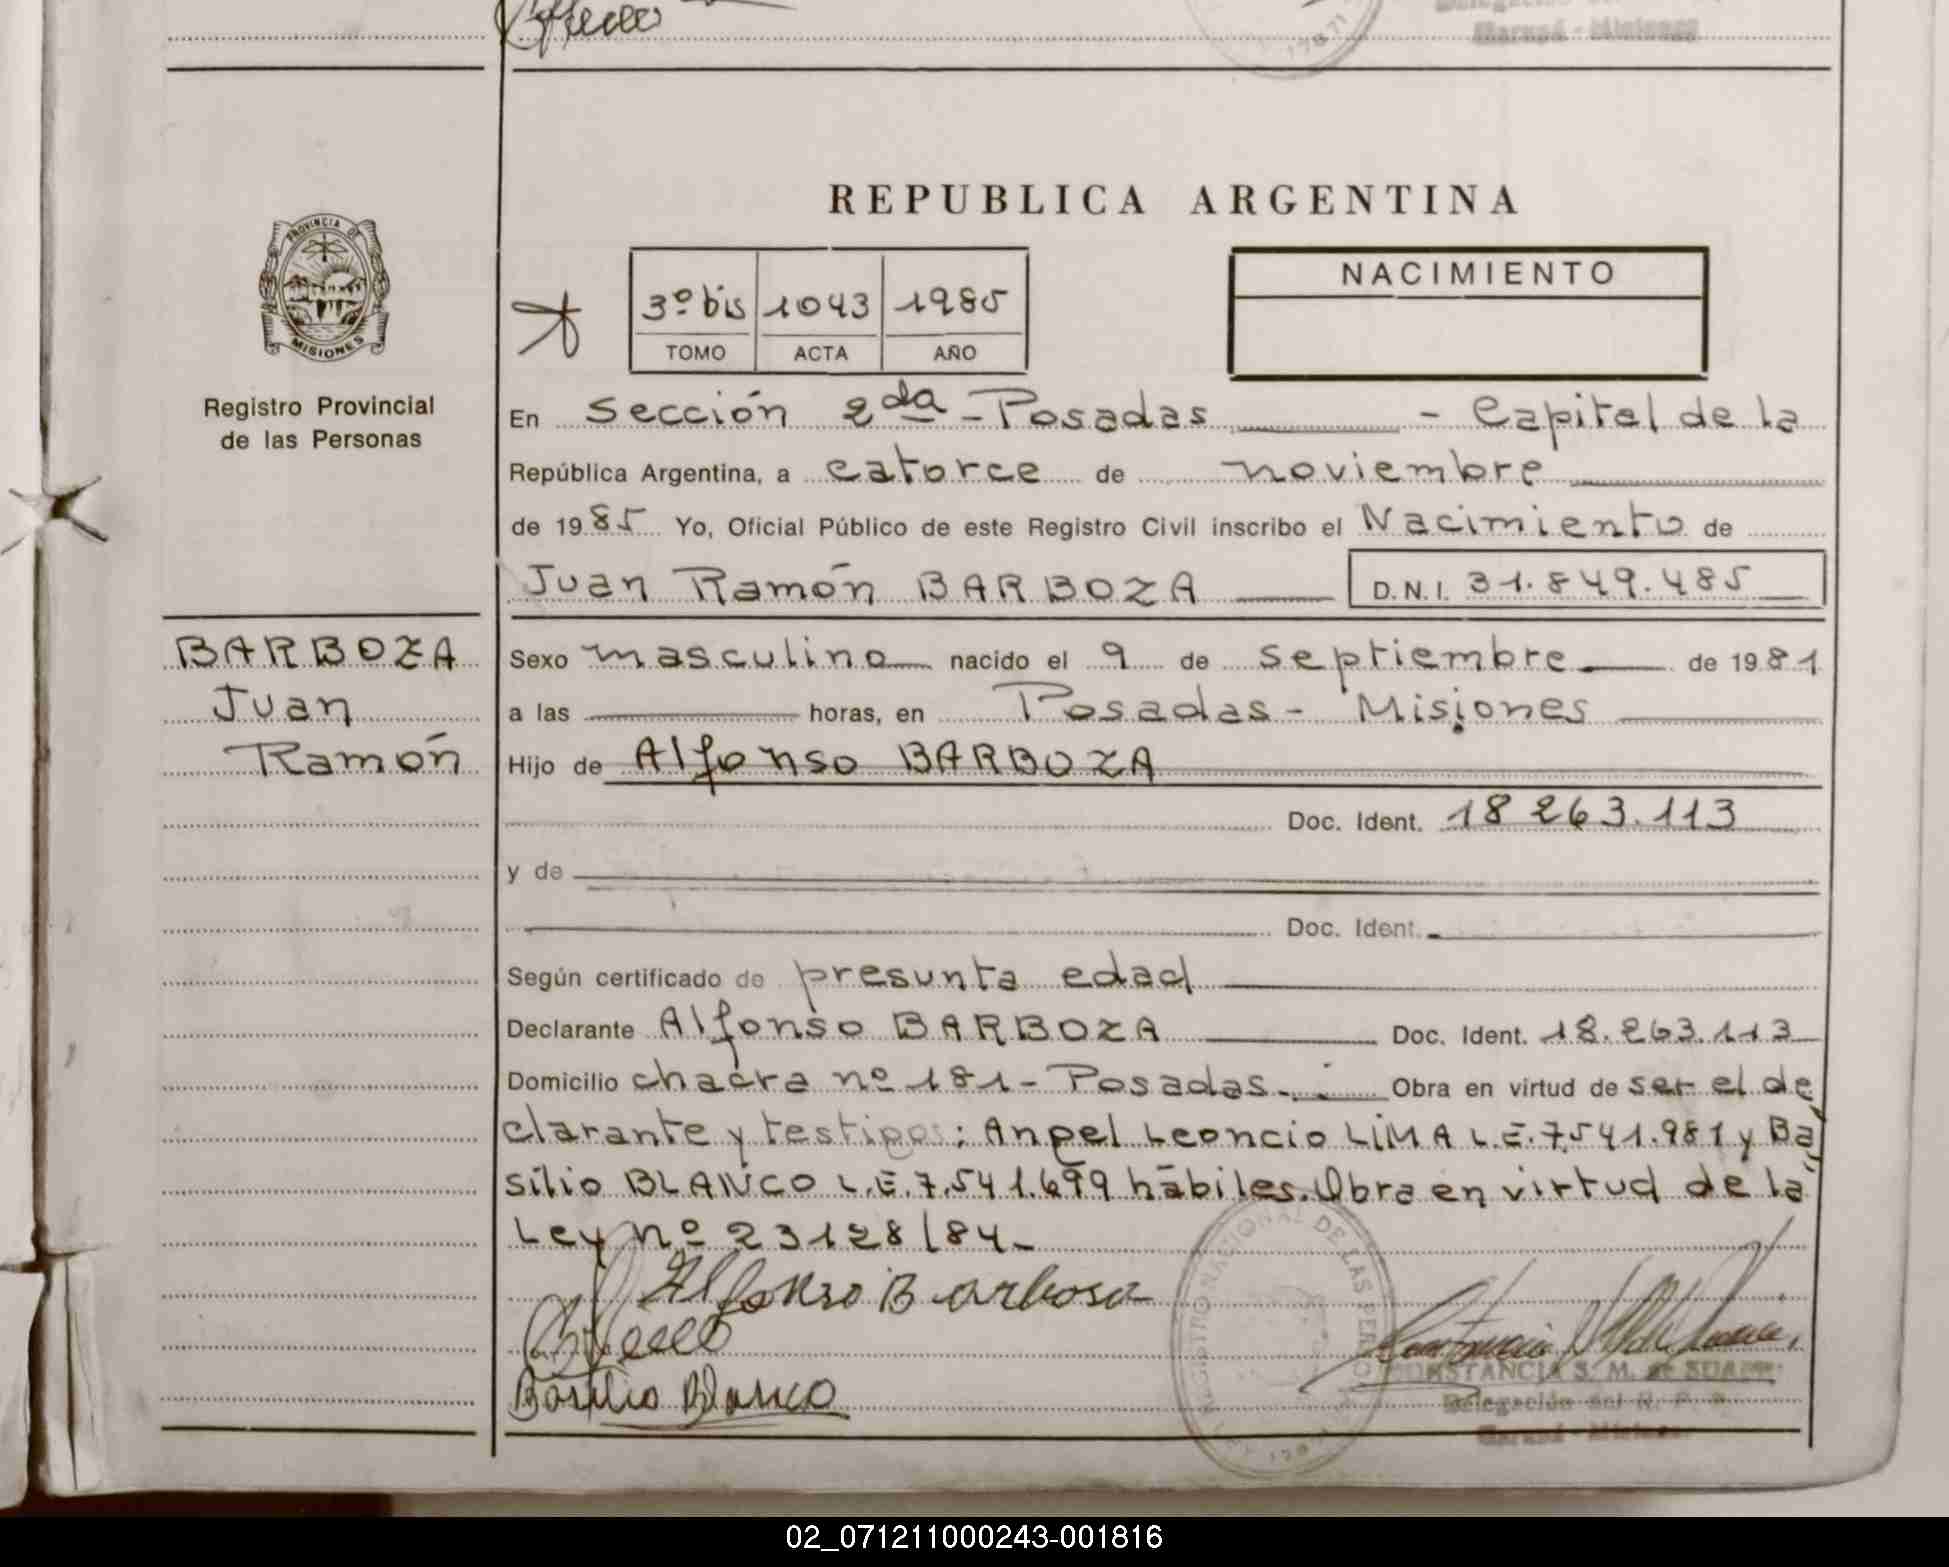 PROVINCIA DE
MISIONES
Registro Provincial
de las Personas
BARBOZA
Juan
Ramón
REPUBLICA ARGENTINA
3º bis 1043 1985
TOMO ACTA AÑO
NACIMIENTO
En Sección 2da - Posadas - Capital de la
República Argentina, a catorce de noviembre
de 1985 Yo, Oficial Público de este Registro Civil inscribo el Nacimiento de
Juan Ramón BARBOZA D.N.I. 31.849.485
Sexo masculino nacido el 9 de septiembre de 1981
a las horas, en Posadas - Misiones
Hijo de Alfonso BARBOZA
Doc. Ident. 18 263.113
y de
Doc. Ident.
Según certificado de presunta edad
Declarante Alfonso BARBOZA Doc. Ident. 18.263.113
Domicilio chacra nº 181 - Posadas. Obra en virtud de ser el de
clarante y testigos: Angel Leoncio LIMA L.E. 7.541.981 y Ba
silio BLANCO L.E. 7.541.699 hábiles. Obra en virtud de la
Ley nº 23128/84-
Alfonso Barbosa
Basilio Blanco
REGISTRO NACIONAL DE LAS PERSONAS
CONSTANCIA S. M. de
Delegación del R. P. P.
Garupá - Misiones
02_071211000243-001816